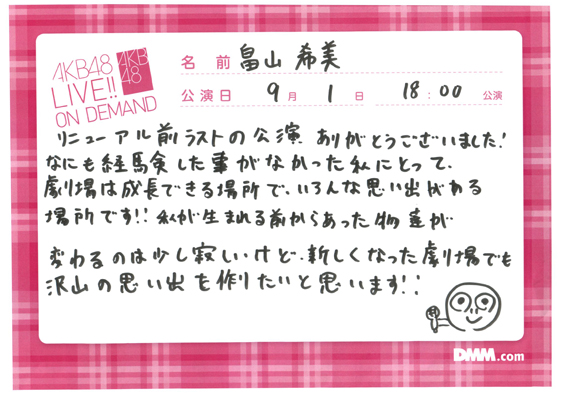 AKB48
LIVE!!
ON DEMAND
AKB
48
名前 畠山 希美
公演日 9月 1日 18:00 公演
リニューアル前ラストの公演 ありがとうございました!
なにも経験した事がなかった私にとって、
劇場は成長できる場所で、いろんな思い出がある
場所です!! 私が生まれる前からあった物達が
変わるのは少し寂しいけど、新しくなった劇場でも
沢山の思い出を作りたいと思います!!
DMM.com